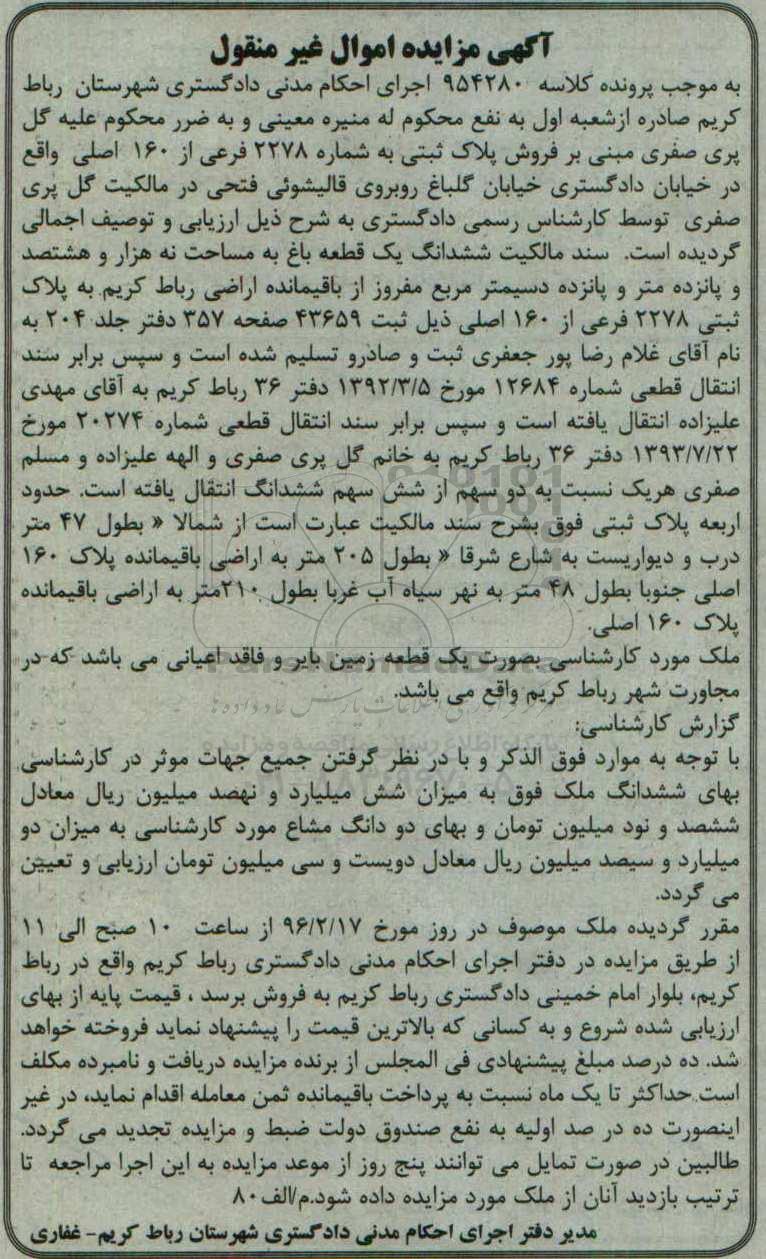 آگهی مزایده اموال غیر منقول
به موجب پرونده کلاسه ۹۵۴۲۸۰ اجرای احکام مدنی دادگستری شهرستان رباط
کریم صادره ازشعبه اول به نفع محکوم له منیره معینی و به ضرر محکوم علیه گل
پری صفری مبنی بر فروش پلاک ثبتی به شماره ۲۲۷۸ فرعی از ۱۶۰ اصلی واقع
در خیابان دادگستری خیابان گلباغ روبروی قالیشوئی فتحی در مالکیت گل پری
صفری توسط کارشناس رسمی دادگستری به شرح ذیل ارزیابی و توصیف اجمالی
گردیده است. سند مالکیت ششدانگ یک قطعه باغ به مساحت نه هزار و هشتصد
و پانزده متر و پانزده دسیمتر مربع مفروز از باقیمانده اراضی رباط کریم به پلاک
ثبتی ۲۲۷۸ فرعی از ۱۶۰ اصلی ذیل ثبت ۴۳۶۵۹ صفحه ۳۵۷ دفتر جلد ۲۰۴ به
نام آقای غلام رضا پور جعفری ثبت و صادرو تسلیم شده است و سپس برابر سند
انتقال قطعی شماره ۱۲۶۸۴ مورخ ۱۳۹۲/۳/۵ دفتر ۳۶ رباط کریم به آقای مهدی
علیزاده انتقال یافته است و سپس برابر سند انتقال قطعی شماره ۲۰۲۷۴ مورخ
۱۳۹۳/۷/۲۲ دفتر ۳۶ رباط کریم به خانم گل پری صفری و الهه علیزاده و مسلم
صفری هریک نسبت به دو سهم از شش سهم ششدانگ انتقال یافته است. حدود
اربعه پلاک ثبتی فوق بشرح سند مالکیت عبارت است از شمالا « بطول ۴۷ متر
درب و دیواریست به شارع شرقا « بطول ۲۰۵ متر به اراضی باقیمانده پلاک ۱۶۰
اصلی جنوبا بطول ۴۸ متر به نهر سیاه آب غربا بطول ۲۱۰متر به اراضی باقیمانده
پلاک ۱۶۰ اصلی.
ملک مورد کارشناسی بصورت یک قطعه زمین بایر و فاقد اعیانی می باشد که در
مجاورت شهر رباط کریم واقع می باشد.
گزارش کارشناسی:
با توجه به موارد فوق الذکر و با در نظر گرفتن جمیع جهات موثر در کارشناسی
بهای ششدانگ ملک فوق به میزان شش میلیارد و نهصد میلیون ریال معادل
ششصد و نود میلیون تومان و بهای دو دانگ مشاع مورد کارشناسی به میزان دو
میلیارد و سیصد میلیون ریال معادل دویست و سی میلیون تومان ارزیابی و تعیین
می گردد.
مقرر گردیده ملک موصوف در روز مورخ ۹۶/۲/۱۷ از ساعت ۱۰ صبح الی ۱۱
از طریق مزایده در دفتر اجرای احکام مدنی دادگستری رباط کریم واقع در رباط
کریم، بلوار امام خمینی دادگستری رباط کریم به فروش برسد ، قیمت پایه از بهای
ارزیابی شده شروع و به کسانی که بالاترین قیمت را پیشنهاد نماید فروخته خواهد
شد. ده درصد مبلغ پیشنهادی فی المجلس از برنده مزایده دریافت و نامبرده مکلف
است حداکثر تا یک ماه نسبت به پرداخت باقیمانده ثمن معامله اقدام نماید، در غیر
اینصورت ده در صد اولیه به نفع صندوق دولت ضبط و مزایده تجدید می گردد.
طالبین در صورت تمایل می توانند پنج روز از موعد مزایده به این اجرا مراجعه تا
ترتیب بازدید آنان از ملک مورد مزایده داده شود.م/الف۸۰
مدیر دفتر اجرای احکام مدنی دادگستری شهرستان رباط کریم- غفاری